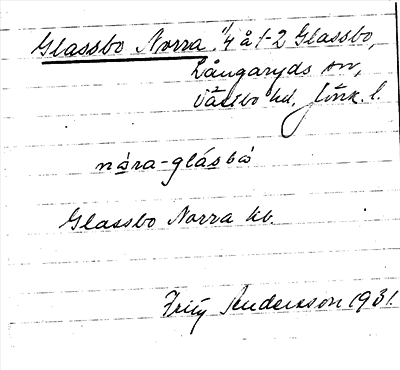 Glassbo Norra. 1/4 å 1-2 Glassbo,
Långaryds sn,
Västbo hd, Jönk. l.
nára-glásbò
Glassbo Norra hb.
Fritz Andersson 1931.